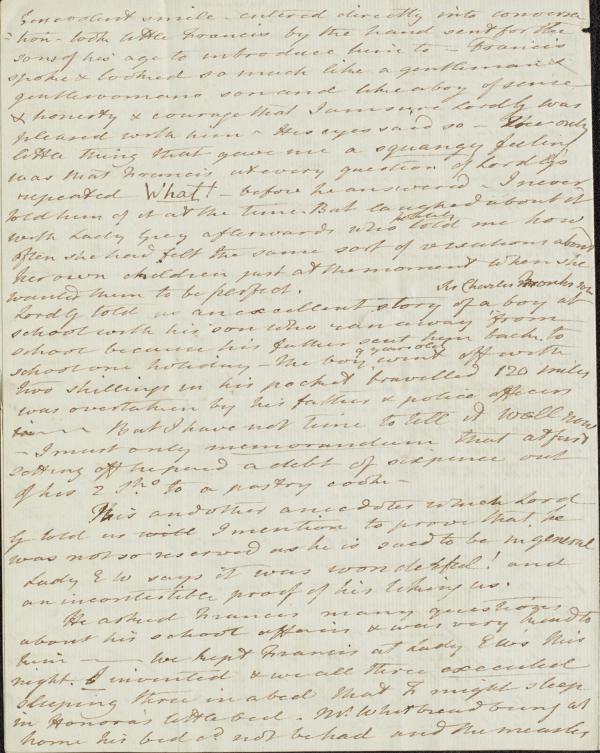 benevolent smile - entered directly into conversa
-tion - took little Francis by the hand sent for the
sons of his age to introduce him to - Francis
spoke & looked so much like a gentleman &
gentlewomans son and like a boy of sense
& honesty & courage that I am sure Lord G was
pleased with him - His eyes said so - The only
little thing that gave me a squangy feeling
was that Francis at every question of Lord G's
repeated What! - before he answered - I never
told him of it at the time But laughed about it
with Lady Grey afterwards who told me how
often she had felt the same sort of vexations about
her own children just at the moment when she
wanted them to be perfect.
Sir Charles Monks son
Lord G told us an excellent story of a boy at
school with his son who ran away from
school because his father sent him back to
school one holiday - The boy went off with
two shillings in his pocket travelled 120 miles
was overtaken by his father & police officers
But I have not time to tell it well now
- I must only memorandum that at first
setting off he paid a debt of sixpence out
of his 2 Shs to a pastry cook -
This and other anecdotes which Lord
G told us will I mention to prove that he
was not so reserved as he is said to be in general
Lady E W says it was wonderful! and
an incontestible proof of his liking us.
He asked Francis many questions
about his school affairs & was very kind to
him - we kept Francis at Lady E W's this
night. I invented & we all three executed
sleeping three in a bed that F might sleep
in Honora's little bed - Mr. Whitbread being at
home his bed cd not be had and the measles